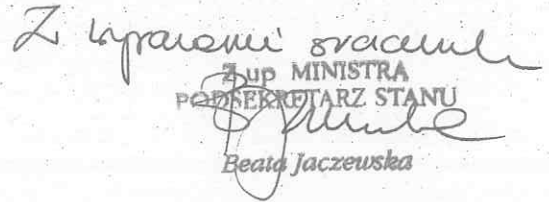 Z wyrazami szacunku
Z up MINISTRA
PODSEKRETARZ STANU
Beata Jaczewska